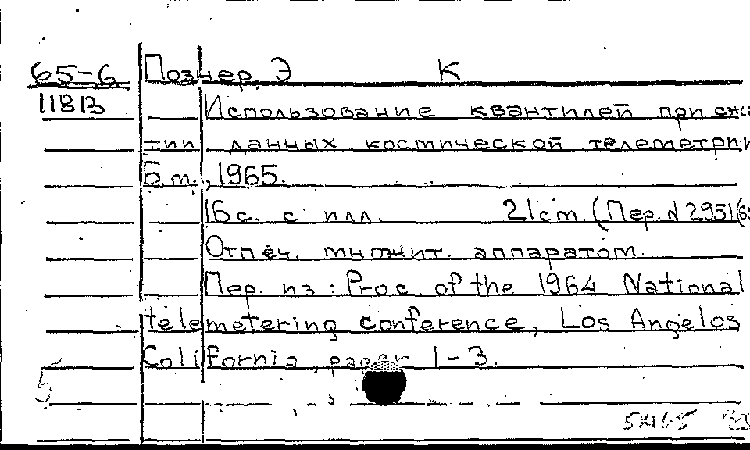 65-6 Познер, Э К
11813
Использование квантилей при сжа
тии данных космической телеметрии
Б.м., 1965.
16 с. с илл. 21 cm. (Пер. N 2951/65
Отпеч. множит. аппаратом.
Пер. из: Proc. of the 1964 National
telemetering conference, Los Angelos
California, paper 1-3.
5